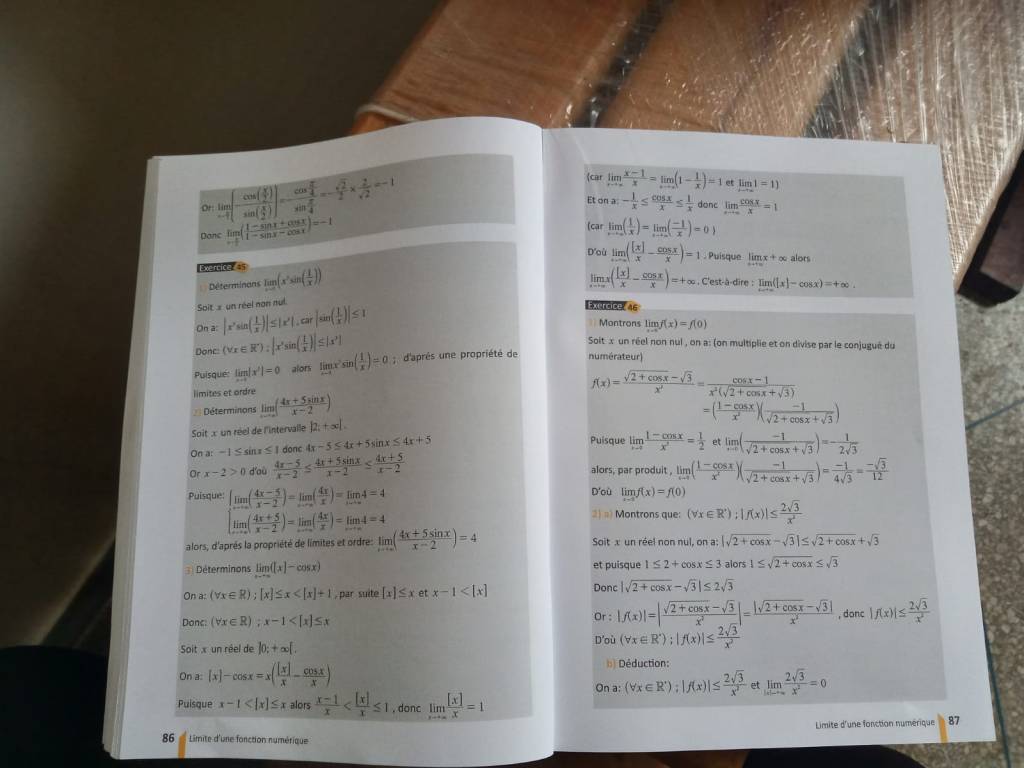 Or: lim_{x→π/2} [−cos(x/2)/sin(x/2)] = −cos(π/4)/sin(π/4) = −√2/2 × 2/√2 = −1
Donc lim_{x→π/2} ((1 − sinx + cosx)/(1 − sinx − cosx)) = −1
Exercice 45
1) Déterminons lim_{x→0} (x² sin(1/x))
Soit x un réel non nul.
On a: |x² sin(1/x)| ≤ |x²|, car |sin(1/x)| ≤ 1
Donc: (∀x ∈ ℝ*) ; |x² sin(1/x)| ≤ |x²|
Puisque: lim_{x→0} |x²| = 0 alors lim_{x→0} x² sin(1/x) = 0 ; d'aprés une propriété de
limites et ordre
2) Déterminons lim_{x→+∞} ((4x + 5sinx)/(x − 2))
Soit x un réel de l'intervalle ]2; +∞[.
On a: −1 ≤ sinx ≤ 1 donc 4x − 5 ≤ 4x + 5sinx ≤ 4x + 5
Or x − 2 > 0 d'où (4x − 5)/(x − 2) ≤ (4x + 5sinx)/(x − 2) ≤ (4x + 5)/(x − 2)
Puisque: { lim_{x→+∞} ((4x − 5)/(x − 2)) = lim_{x→+∞} (4x/x) = lim_{x→+∞} 4 = 4
lim_{x→+∞} ((4x + 5)/(x − 2)) = lim_{x→+∞} (4x/x) = lim_{x→+∞} 4 = 4
alors, d'aprés la propriété de limites et ordre: lim_{x→+∞} ((4x + 5sinx)/(x − 2)) = 4
3) Déterminons lim_{x→+∞} ([x] − cosx)
On a: (∀x ∈ ℝ) ; [x] ≤ x < [x] + 1 , par suite [x] ≤ x et x − 1 < [x]
Donc: (∀x ∈ ℝ) ; x − 1 < [x] ≤ x
Soit x un réel de ]0; +∞[.
On a: [x] − cosx = x([x]/x − cosx/x)
Puisque x − 1 < [x] ≤ x alors (x − 1)/x < [x]/x ≤ 1 , donc lim_{x→+∞} [x]/x = 1
86 Limite d'une fonction numérique
(car lim_{x→+∞} (x − 1)/x = lim_{x→+∞} (1 − 1/x) = 1 et lim_{x→+∞} 1 = 1)
Et on a: −1/x ≤ cosx/x ≤ 1/x donc lim_{x→+∞} cosx/x = 1
(car lim_{x→+∞} (1/x) = lim_{x→+∞} (−1/x) = 0 )
D'où lim_{x→+∞} ([x]/x − cosx/x) = 1 . Puisque lim_{x→+∞} x + ∞ alors
lim_{x→+∞} x([x]/x − cosx/x) = +∞ . C'est-à-dire : lim_{x→+∞} ([x] − cosx) = +∞ .
Exercice 46
1) Montrons lim_{x→0} f(x) = f(0)
Soit x un réel non nul , on a: (on multiplie et on divise par le conjugué du
numérateur)
f(x) = (√(2 + cosx) − √3)/x² = (cosx − 1)/(x²(√(2 + cosx) + √3))
= ((1 − cosx)/x²)(−1/(√(2 + cosx) + √3))
Puisque lim_{x→0} (1 − cosx)/x² = 1/2 et lim_{x→0} (−1/(√(2 + cosx) + √3)) = −1/(2√3)
alors, par produit , lim_{x→0} ((1 − cosx)/x²)(−1/(√(2 + cosx) + √3)) = −1/(4√3) = −√3/12
D'où lim_{x→0} f(x) = f(0)
2) a) Montrons que: (∀x ∈ ℝ*) ; |f(x)| ≤ 2√3/x²
Soit x un réel non nul, on a: |√(2 + cosx) − √3| ≤ √(2 + cosx) + √3
et puisque 1 ≤ 2 + cosx ≤ 3 alors 1 ≤ √(2 + cosx) ≤ √3
Donc |√(2 + cosx) − √3| ≤ 2√3
Or : |f(x)| = |(√(2 + cosx) − √3)/x²| = |√(2 + cosx) − √3|/x² , donc |f(x)| ≤ 2√3/x²
D'où (∀x ∈ ℝ*) ; |f(x)| ≤ 2√3/x²
b) Déduction:
On a: (∀x ∈ ℝ*) ; |f(x)| ≤ 2√3/x² et lim_{|x|→+∞} 2√3/x² = 0
Limite d'une fonction numérique 87